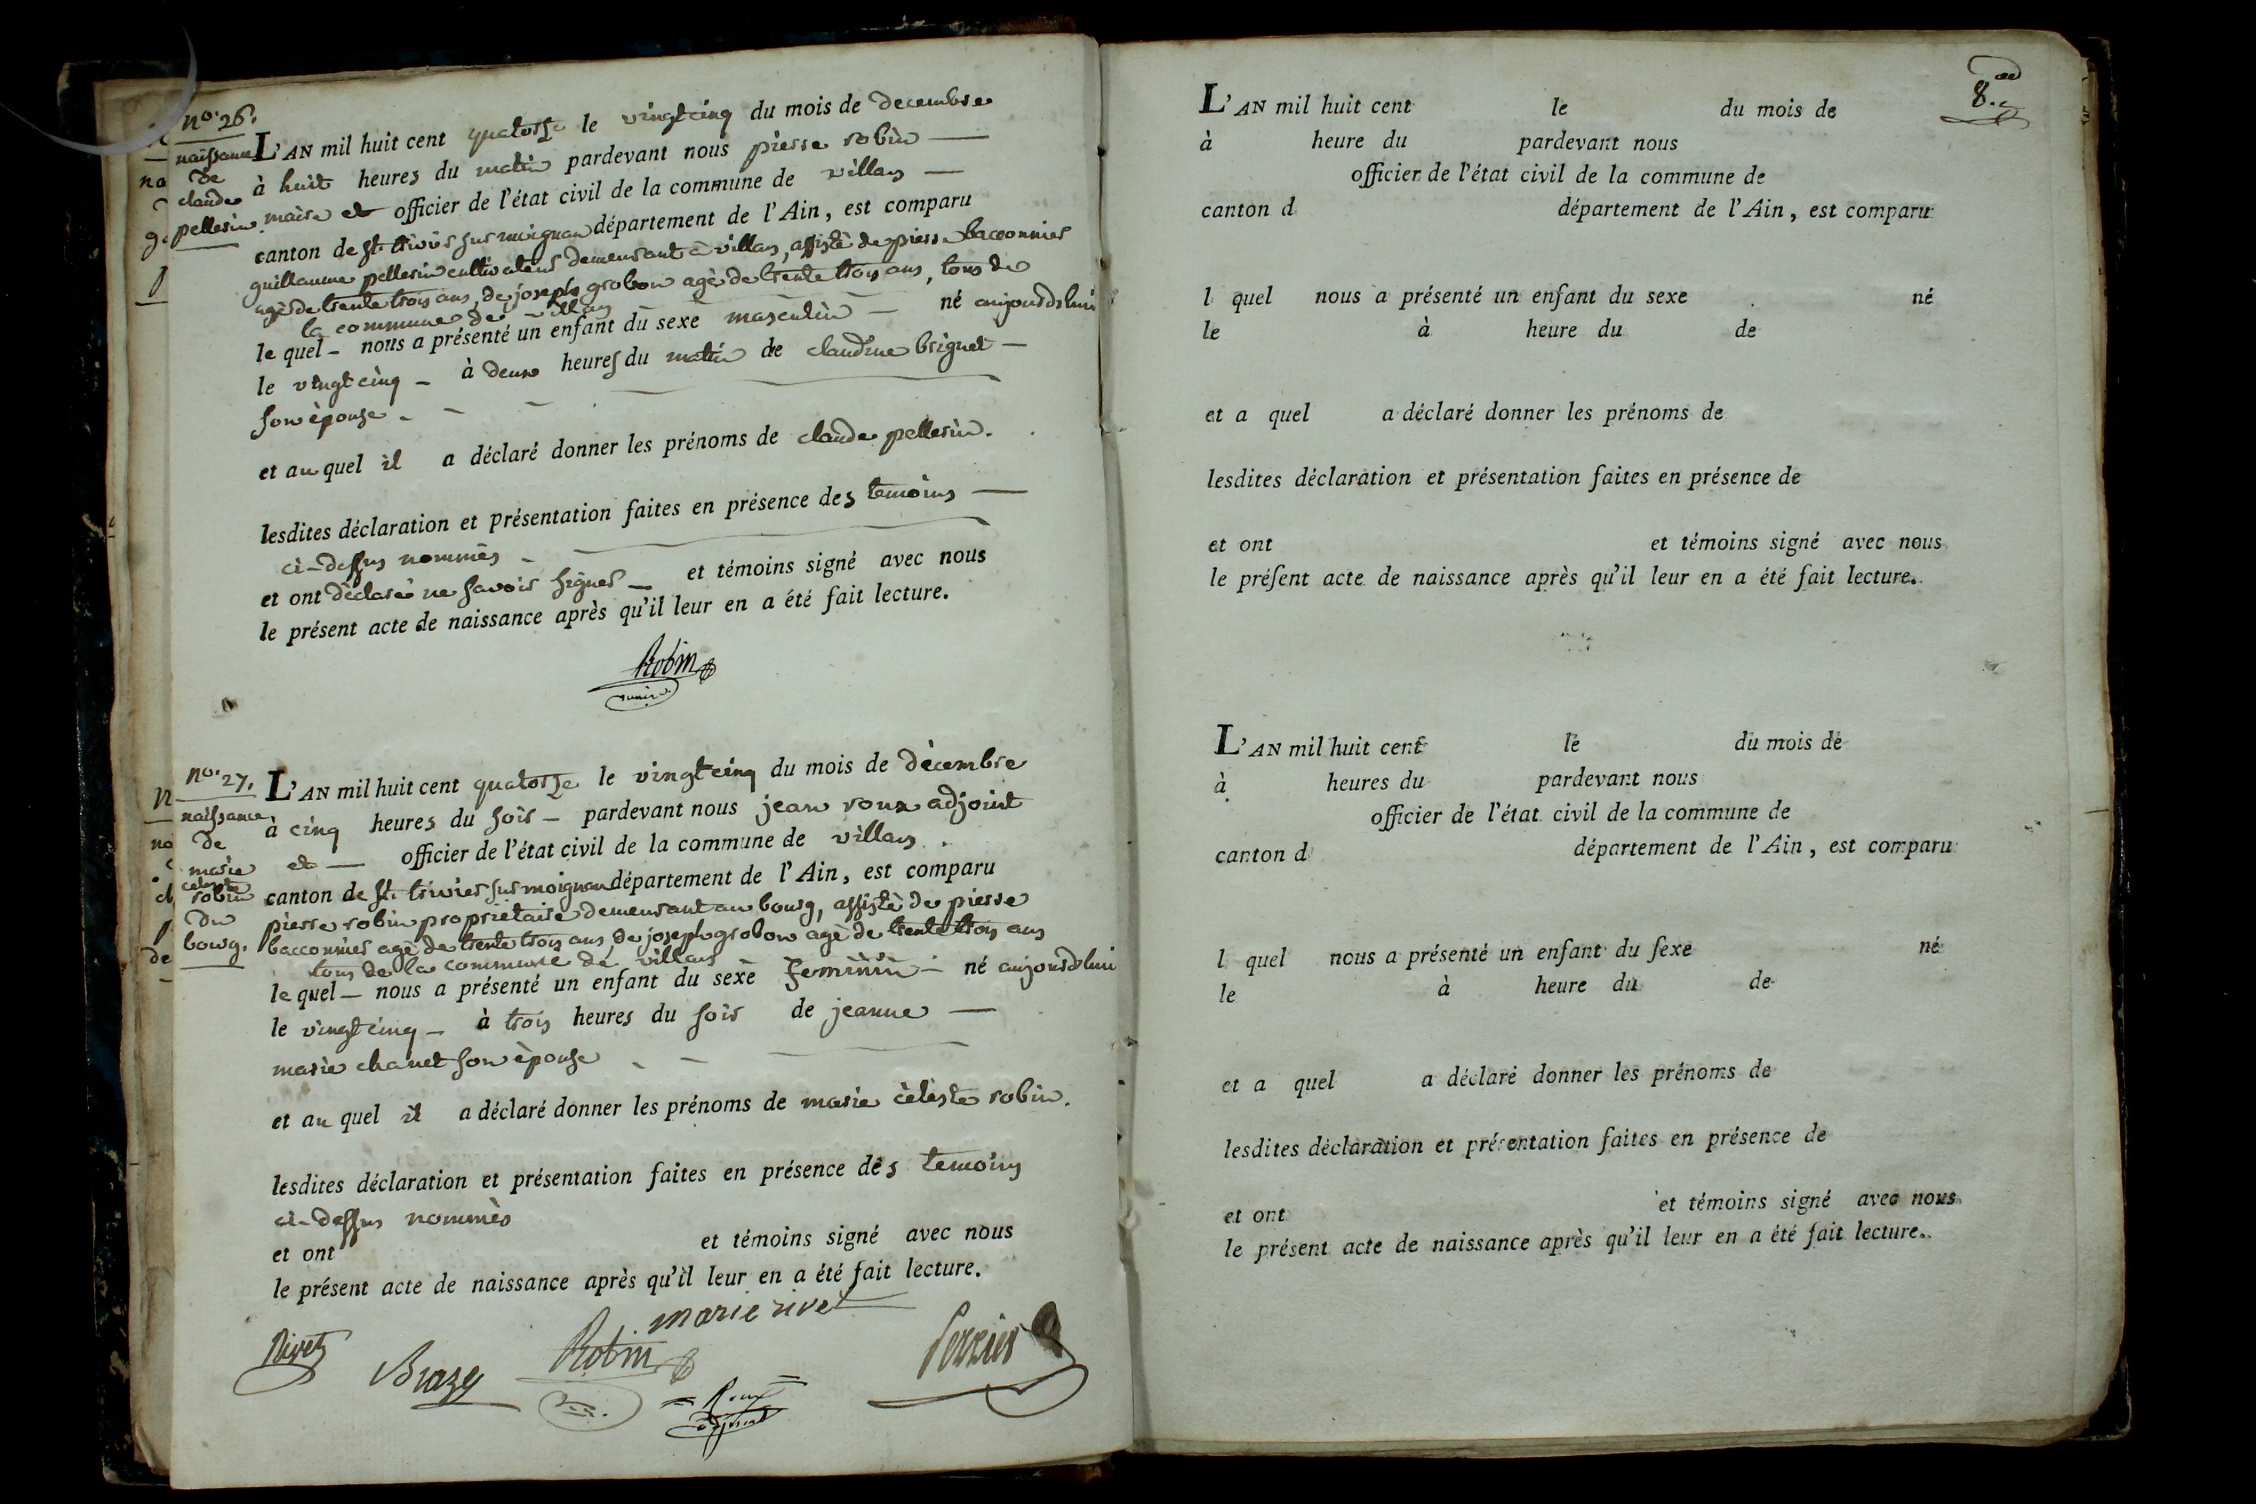 no. 26.
naissance
de
claude
pellerin.
L'AN mil huit cent quatorze le vingt cinq du mois de decembre
à huit heures du matin pardevant nous pierre robin
maire et officier de l'état civil de la commune de villars
canton de st. trivier sur moignan département de l'Ain, est comparu
guillaume pellerin cultivateur demeurant à villars, assisté de pierre bacconnier
agè de trente trois ans, de joseph grobon agè de trente trois ans, tous de
la commune de villars
le quel – nous a présenté un enfant du sexe masculin – né aujourd'hui
le vingt cinq – à deux heures du matin de claudine brignet –
son èpouse
et au quel il a déclaré donner les prénoms de claude pellerin.
lesdites déclaration et présentation faites en présence des temoins
ci-dessus nommès
et ont dèclarè ne savoir signer – et témoins signé avec nous
le présent acte de naissance après qu'il leur en a été fait lecture.
Robin
maire
no. 27.
naissance
de
marie
celeste
robin
du
bourg.
L'AN mil huit cent quatorze le vingt cinq du mois de dècembre
à cinq heures du soir – pardevant nous jean roux adjoint
et officier de l'état civil de la commune de villars
canton de st. trivier sur moignan département de l'Ain, est comparu
pierre robin propriètaire demeurant au bourg, assistè de pierre
bacconnier agè de trente trois ans, de joseph grobon agè de trente trois ans
tous de la commune de villars
le quel – nous a présenté un enfant du sexe feminin – né aujourd'hui
le vingt cinq – à trois heures du soir de jeanne
marie chanet son èpouse
et au quel il a déclaré donner les prénoms de marie cèleste robin.
lesdites déclaration et présentation faites en présence des temoins
ci-dessus nommès
et ont et témoins signé avec nous
le présent acte de naissance après qu'il leur en a été fait lecture.
marie rivet
Rivet Brazy Robin Perrier
Roux
adjoint
8.
L'AN mil huit cent le du mois de
à heure du pardevant nous
officier de l'état civil de la commune de
canton d département de l'Ain, est comparu
l quel nous a présenté un enfant du sexe né
le à heure du de
et a quel a déclaré donner les prénoms de
lesdites déclaration et présentation faites en présence de
et ont et témoins signé avec nous
le présent acte de naissance après qu'il leur en a été fait lecture.
L'AN mil huit cent le du mois de
à heures du pardevant nous
officier de l'état civil de la commune de
canton d département de l'Ain, est comparu
l quel nous a présenté un enfant du sexe né
le à heure du de
et a quel a déclaré donner les prénoms de
lesdites déclaration et présentation faites en présence de
et ont et témoins signé avec nous
le présent acte de naissance après qu'il leur en a été fait lecture.